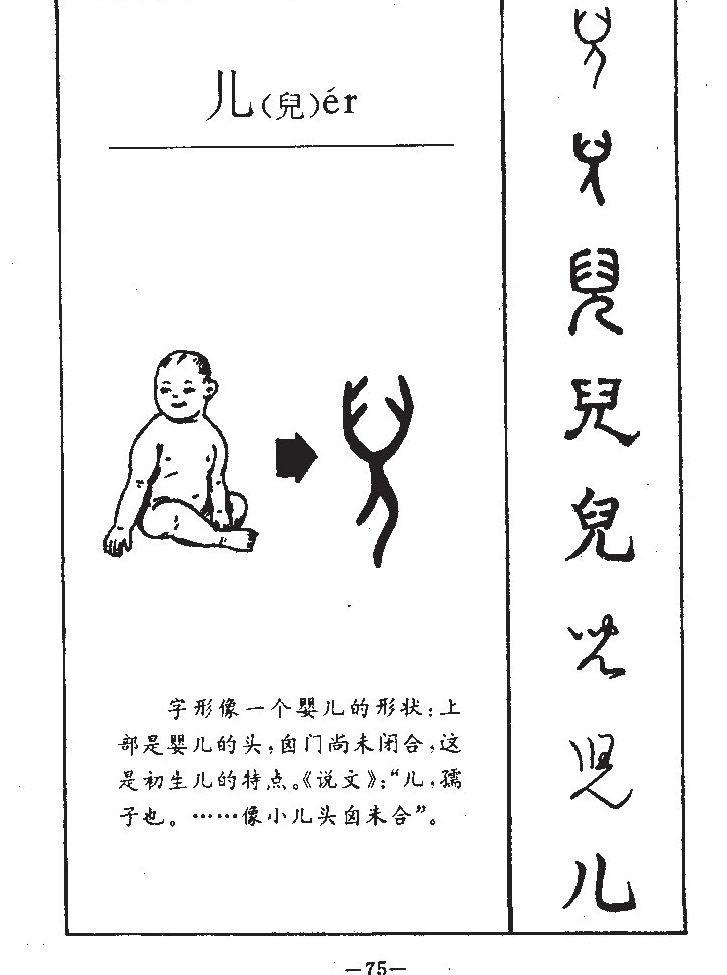 儿(兒)ér
字形像一个婴儿的形状:上
部是婴儿的头,囟门尚未闭合,这
是初生儿的特点。《说文》:“儿,孺
子也。……像小儿头囟未合”。
兒
兒
兒
兒
儿
—75—